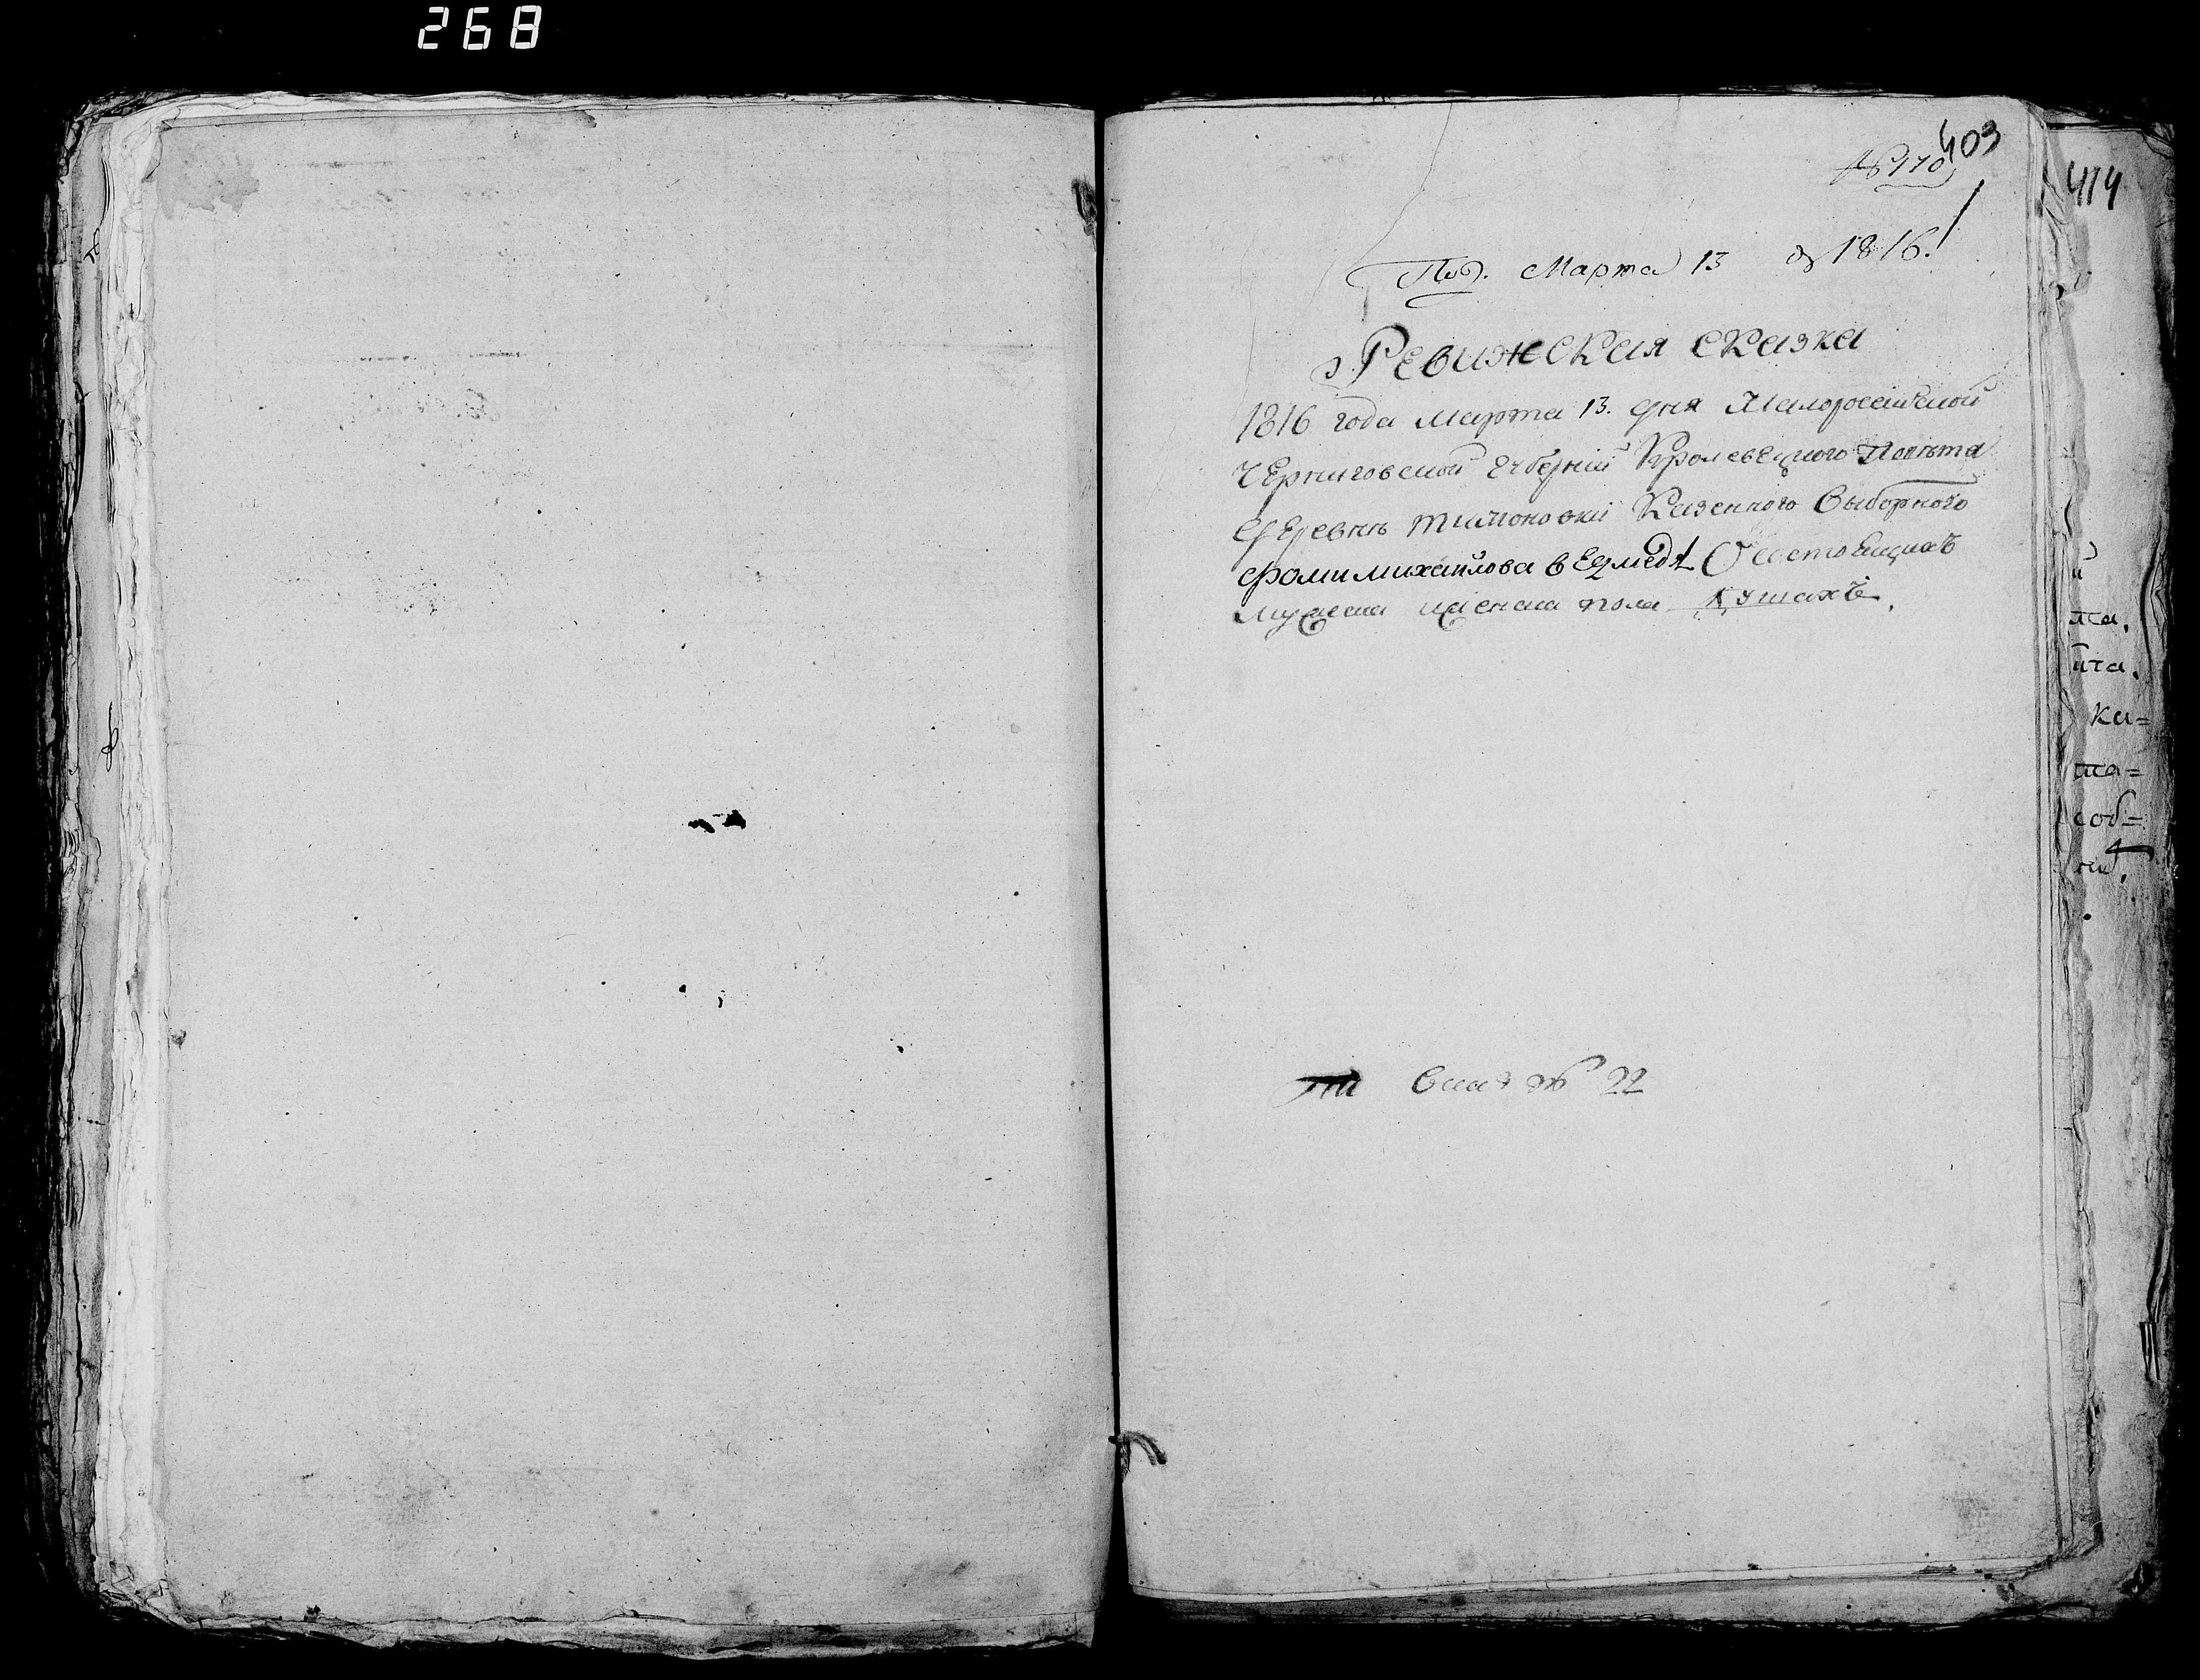 268
403
№ 170
414
Под. Марта 13 д 1816!
Ревижская сказка
1816 года марта 13. дня Малоросийской
Черниговской Губернии Кролевецкого Повѣта
деревнѣ тимоновки Казенного Выборного
фоми михайлова ведмедя О состоящихъ
мужеска и женска пола душахъ.
й
та.
ита.
ка=
та=
соб=
№ 22